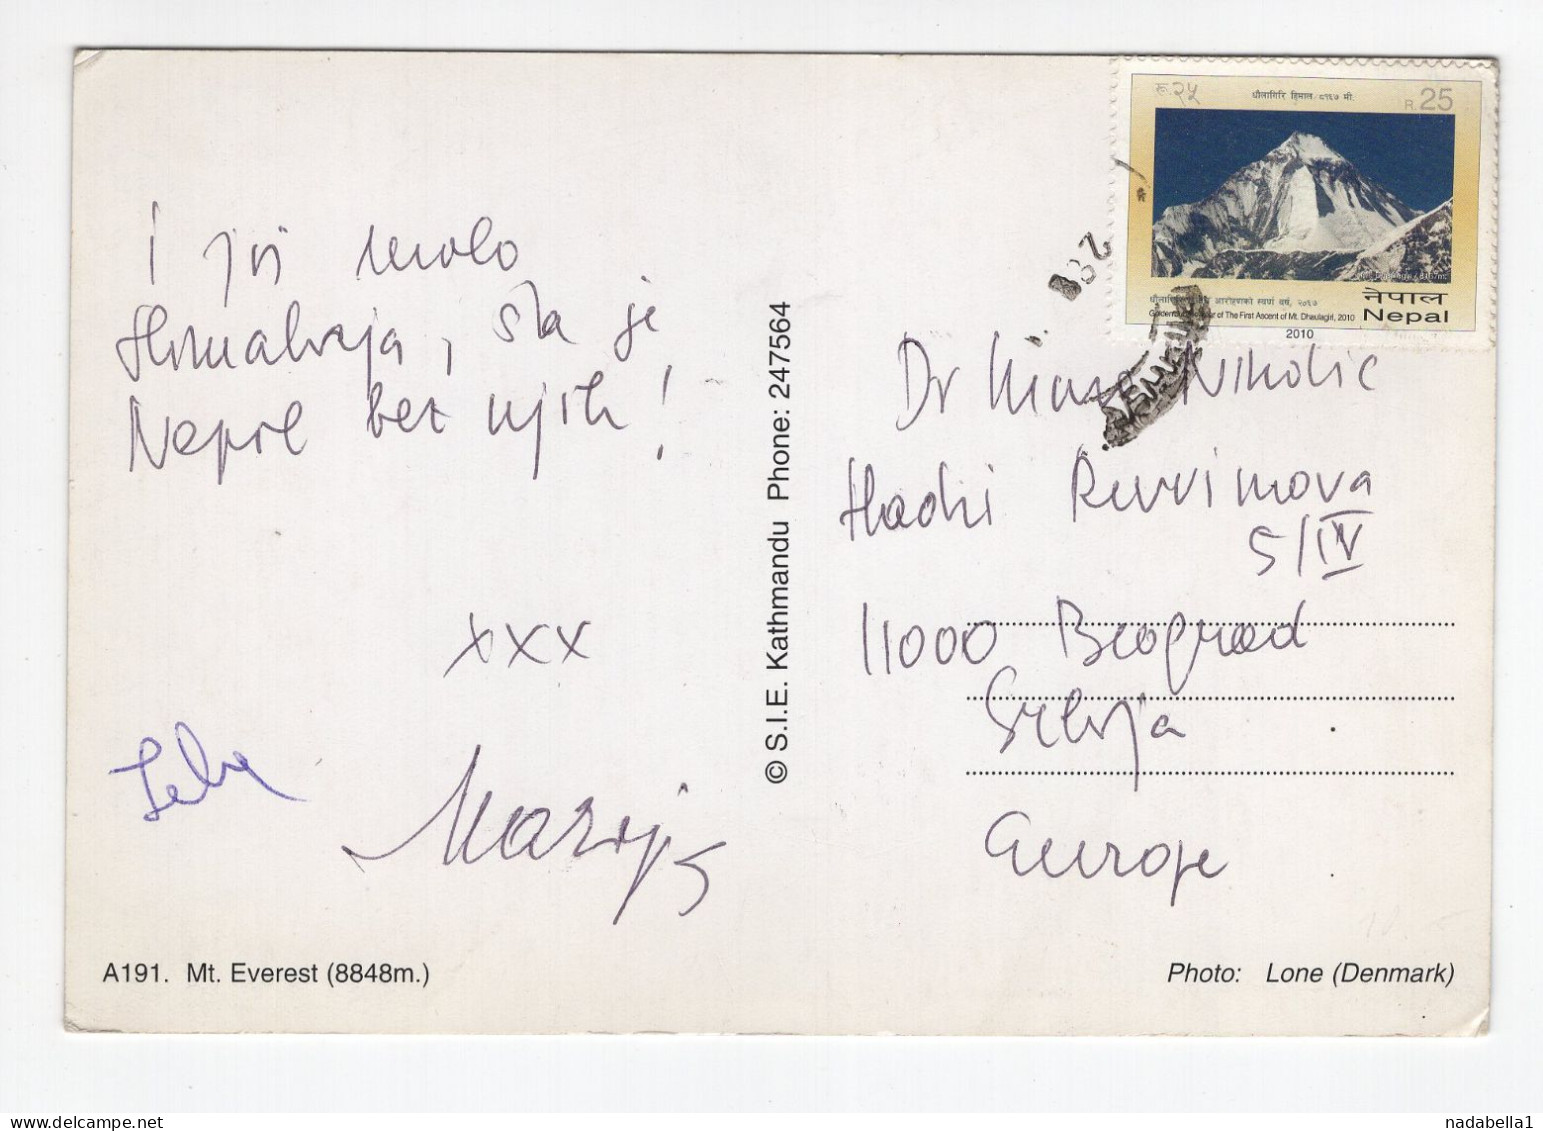 I još malo
Himalaja, šta je
Nepal bez njih!
xxx
© S.I.E. Kathmandu Phone: 247564
A191. Mt. Everest (8848m.)
रू.२५
धौलागिरि हिमाल/८१६७ मी.
R. 25
8167m.
आरोहणको स्वर्ण वर्ष, २०६७
of The First Ascent of Mt. Dhaulagiri, 2010
नेपाल
Nepal
2010
Dr Nikolic
Hadzi Ruvimova
5/IV
11000 Beograd
Srbija
Europe
Photo: Lone (Denmark)
nadabella1